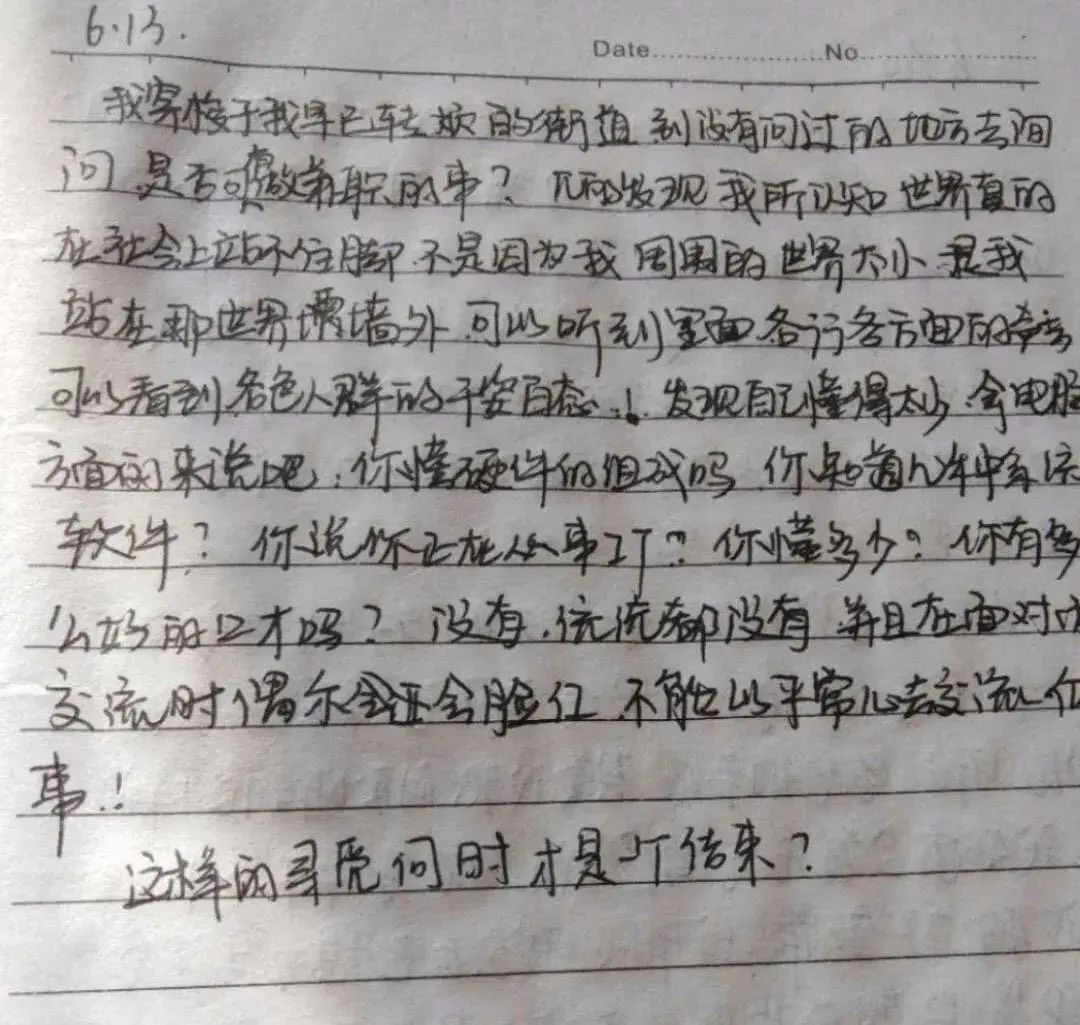 6.13.
Date No
我穿梭于我早已转烦的街道 到没有问过的地方去询
问 是否可做兼职的事? 发现我所认知世界真的
在社会上站不住脚 不是因为我周围的世界太小 是我
站在那世界墙外 可以听到里面各行各方面的
可以看到各色人群的千姿百态..! 发现自己懂得太少 会电脑
方面的来说吧. 你懂硬件的组成吗 你知道几年
软件? 你说你正在从事IT? 你懂多少? 你有多
么好的口才吗? 没有. 统统都没有 并且在面对
交流时偶尔会还会脸红 不能以平常心去交流
事..!
这样的寻觅何时才是个结束?